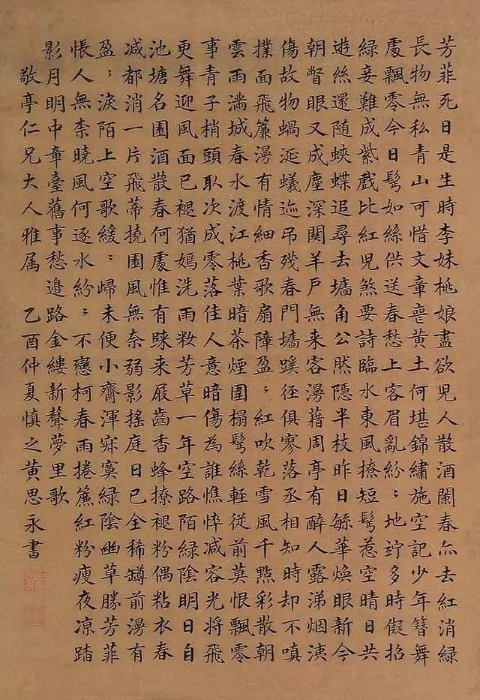 芳菲死日是生時李妹桃娘盡欲兒人散酒闌春亦去紅消綠
長物無私青山可惜文章喪黃土何堪錦繡施空記少年簪舞
處飄零今日鬂如絲供送春愁上客眉亂紛〻地竚多時儗招
綠妾難成紫戲比紅兒煞要詩臨水東風撩短鬂惹空晴日共
遊絲還隨蛺蝶追尋去墻角公然隱半枝昨日緐華煥眼新今
朝瞥眼又成塵深関羊戶無來客漫藉周亭有醉人露涕烟洟
傷故物蝸涎蟻迹吊殘春門墻蹊徑俱寥落丞相知時却不嗔
撲面飛簾漫有情細香歌扇障盈〻紅吹乾雪風千點彩散朝
雲雨滿城春水渡江桃葉暗茶煙圍榻鬂絲輕從前莫恨飄零
事青子梢頭取次成零落佳人意暗傷為誰憔悴減容光將飛
更舞迎風面已褪猶嫣洗雨粧芳草一年空路陌綠陰明日自
池塘名園酒散春何處惟有踈來屐齒香蜂撩褪粉偶粘衣春
減都消一片飛蒂撓園風無奈弱影搖庭日已全稀罇前漫有
盈〻淚陌上空歌緩〻歸未便小齋渾寂寞綠陰幽草勝芳菲
悵人無柰曉風何逐水紛〻不戀柯春雨捲簾紅粉瘦夜涼踏
影月明中章臺舊事愁邊路金縷新聲夢里歌
敬亭仁兄大人雅属 乙酉仲夏慎之黃思永書